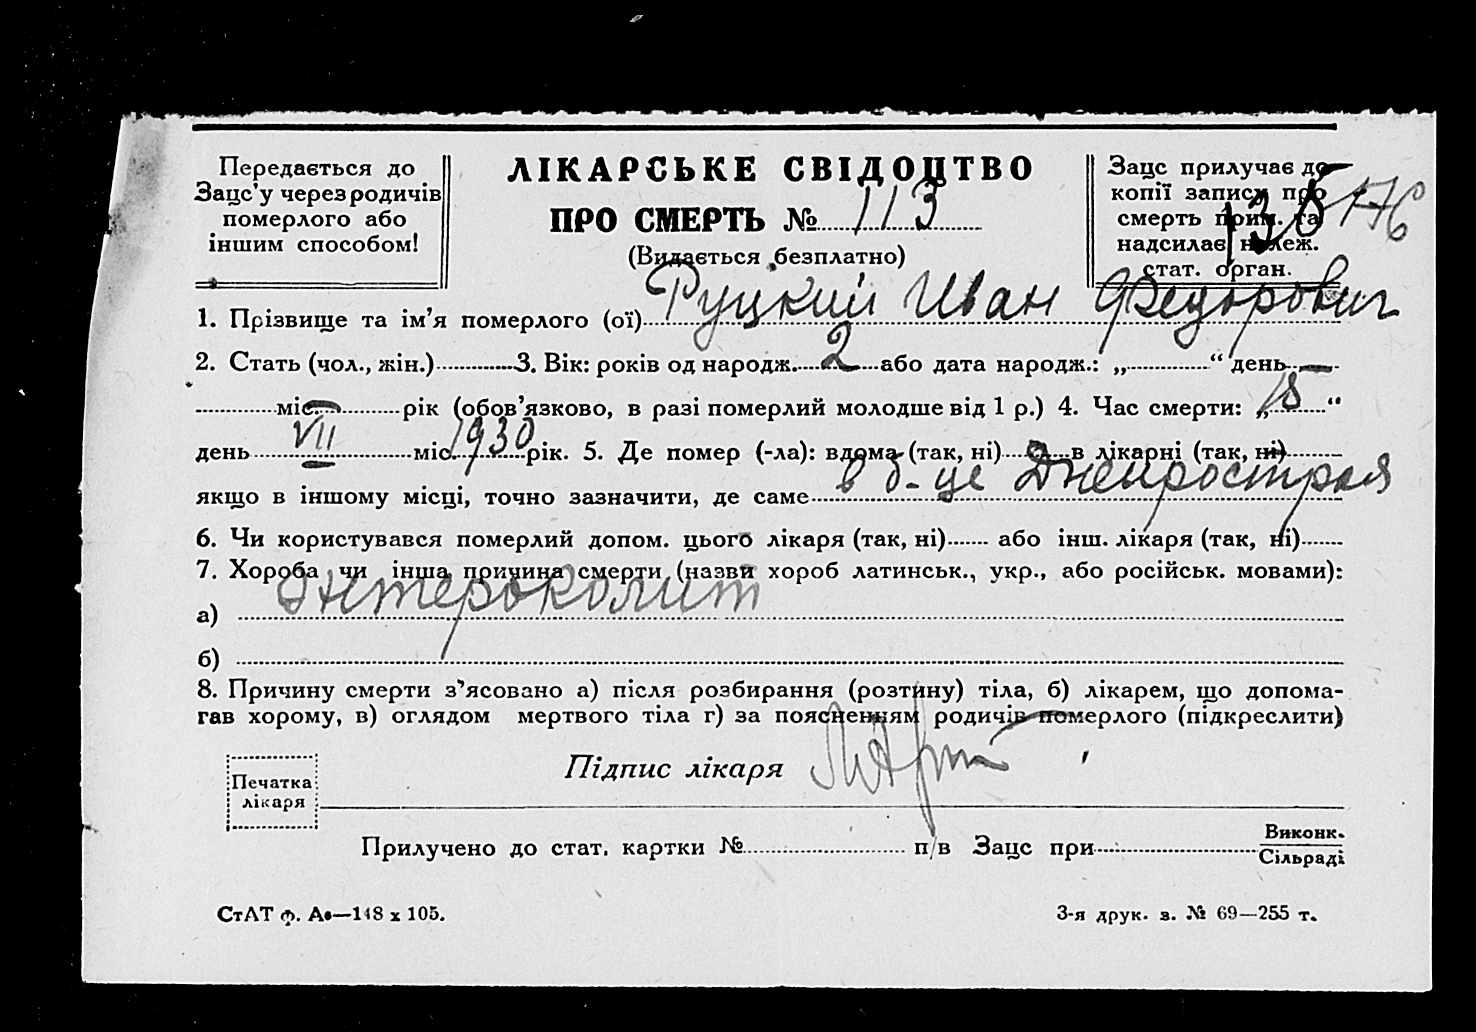 Передається до
Загс'у через родичів
померлого або
іншим способом!
ЛІКАРСЬКЕ СВІДОЦТВО
ПРО СМЕРТЬ № 113
(Видається безплатно)
Загс прилучає до
копії запису про
смерть прим. та
надсилає належ.
стат. орган.
135 176
1. Прізвище та ім'я померлого (ої) Руцкий Иван Федорович
2. Стать (чол., жін.) 3. Вік: років од народж. 2 або дата народж.: „ “ день —
міс. — рік (обов'язково, в разі померлий молодше від 1 р.) 4. Час смерти: „15“
день VII міс. 1930 рік. 5. Де помер (-ла): вдома (так, ні) в лікарні (так, ні)
якщо в іншому місці, точно зазначити, де саме в б-це Днепростроя
6. Чи користувався померлий допом. цього лікаря (так, ні) або інш. лікаря (так, ні)
7. Хороба чи інша причина смерти (назви хороб латинськ., укр., або російськ. мовами):
а) Энтероколит
б)
8. Причину смерти з'ясовано а) після розбирання (розтину) тіла, б) лікарем, що допома-
гав хорому, в) оглядом мертвого тіла г) за поясненням родичів померлого (підкреслити)
Печатка
лікаря
Підпис лікаря
Прилучено до стат. картки № п/в Загс при Виконк.
Сільраді
СтАТ ф. Ав—148 х 105.
3-я друк. з. № 69—255 т.